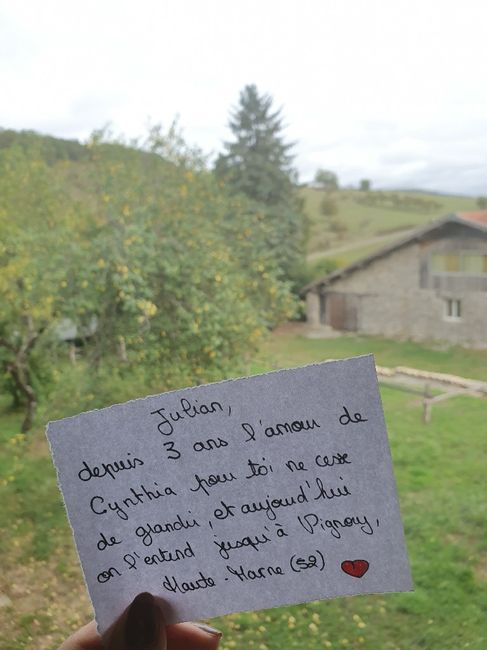 Julian,
depuis 3 ans l'amour de
Cynthia pour toi ne cesse
de grandir, et aujourd'hui
on l'entend jusqu'à Vignory,
Haute-Marne (52)